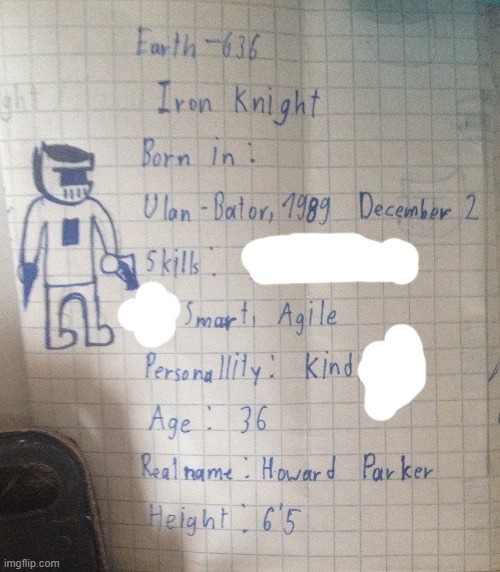 Earth-636
Iron Knight
Born in:
Ulan-Bator, 1989 December 2
Skills:
Smart, Agile
Personallity: Kind
Age: 36
Real name: Howard Parker
Height: 6'5
imgflip.com